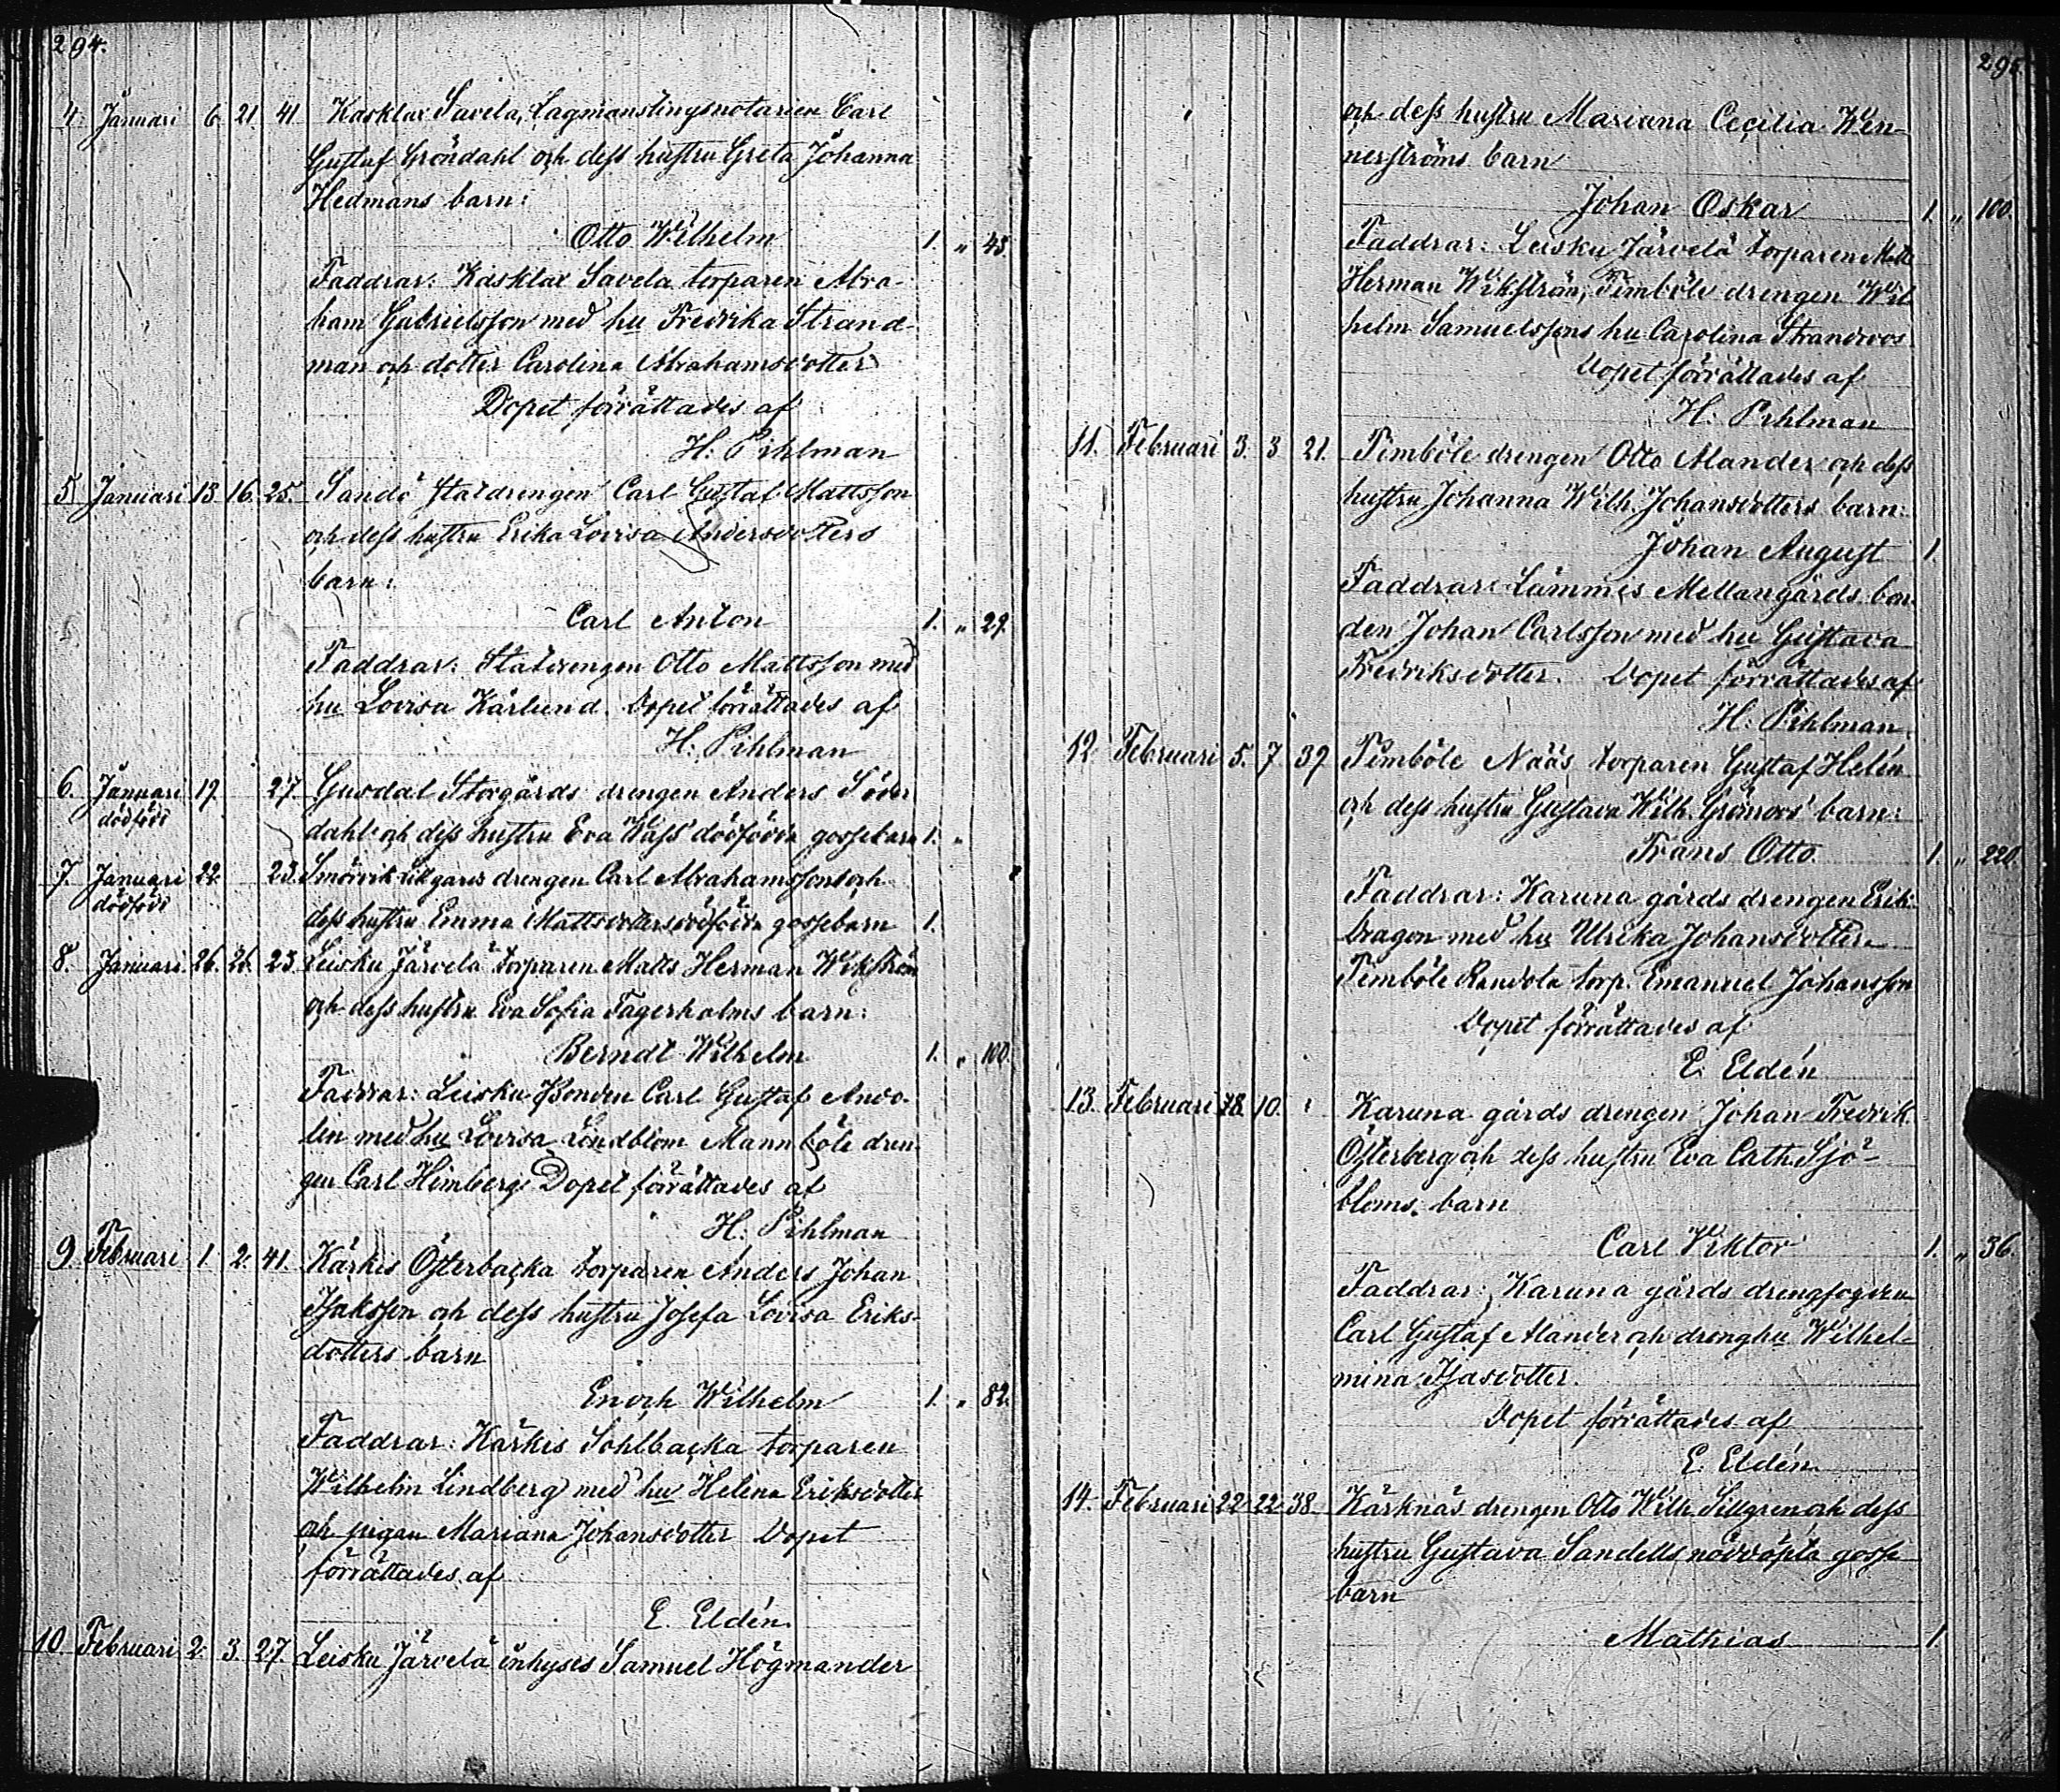 294.
4. Januari 6. 21. 41. Kasklax Savela, Lagmanstingsnotarien Carl
Gustaf Gröndahl och dess hustru Greta Johanna
Hedmans barn:
Otto Wilhelm 1. „ 43.
Faddrar: Kasklax Savela torparen Abra-
ham Gabrielsson med hu Fredrika Strand-
man och dotter Carolina Abrahamsdotter
Dopet förrättades af
H. Pihlman
5. Januari 13. 16. 25. Sandö statdrengen Carl Gustaf Mattsson
och dess hustru Erika Lovisa Andersdotters
barn:
Carl Anton 1. „ 29.
Faddrar: Statdrengen Otto Mattsson med
hu Lovisa Karlund. Dopet förrättades af
H. Pihlman
6. Januari 19. 27. Gusdal Storgårds drengen Anders Söder
dödfödt
dahl och dess hustru Eva Wass' dödfödda gossebarn 1. „
7. Januari 22. 23. Smörvik drengen Carl Abrahamssons och
dödfödt
dess hustru Emma Mattsdotters dödfödda gossebarn 1.
8. Januari 26. 26. 23. Leisku Järvelä torparen Matts Herman Wikström
och dess hustru Eva Sofia Fagerholms barn:
Berndt Wilhelm 1. „ 100.
Faddrar: Leisku Bonden Carl Gustaf Ando-
lin med hu Lovisa Lindblom Mannböle dren-
gen Carl Himberg Dopet förrättades af
H. Pihlman
9. Februari 1. 2. 41. Kärkis Österbacka torparen Anders Johan
Isaksson och dess hustru Josefa Lovisa Eriks-
dotters barn
Enoch Wilhelm 1. „ 82.
Faddrar: Kärkis Sohlbacka torparen
Wilhelm Lindberg med hu Helena Eriksdotter
och pigan Mariana Johansdotter Dopet
förrättades af
E. Eldén.
10. Februari 2. 3. 27. Leisku Järvelä inhyses Samuel Högmander
295.
och dess hustru Mariana Cecilia Wen-
nerströms barn
Johan Oskar 1. „ 100.
Faddrar: Leisku Järvelä torparen Matts
Herman Wikström, Pemböle drengen Wil
helm Samuelssons hu Carolina Strandroos
Dopet förrättades af
H. Pihlman
11. Februari 3. 3. 21. Pemböle drengen Otto Alander och dess
hustru Johanna Wilh. Johansdotters barn:
Johan August 1.
Faddrar: Lammis Mellangårds bon-
den Johan Carlsson med hu Gustava
Fredriksdotter. Dopet förrättades af
H. Pihlman.
12. Februari 5. 7. 39. Pemböle Nääs torparen Gustaf Helén
och dess hustru Gustava Wilh. Grönroos' barn:
Frans Otto 1. „ 220.
Faddrar: Karuna gårds drengen Erik
Dragon med hu Ulrika Johansdotter
Pemböle Randola torp. Emanuel Johansson
Dopet förrättades af
E. Eldén
13. Februari 10. Karuna gårds drengen Johan Fredrik
Österberg och dess hustru Eva Cath. Sjö-
bloms barn
Carl Viktor 1. „ 36.
Faddrar: Karuna gårds drengfogden
Carl Gustaf Alander och drenghu Wilhel-
mina Isasdotter.
Dopet förrättades af
E. Eldén.
14. Februari 22. 22. 38. Kärknäs drengen Otto Wilh. Sillgren och dess
hustru Gustava Sandells nöddöpta gosse
barn
Mathias 1.